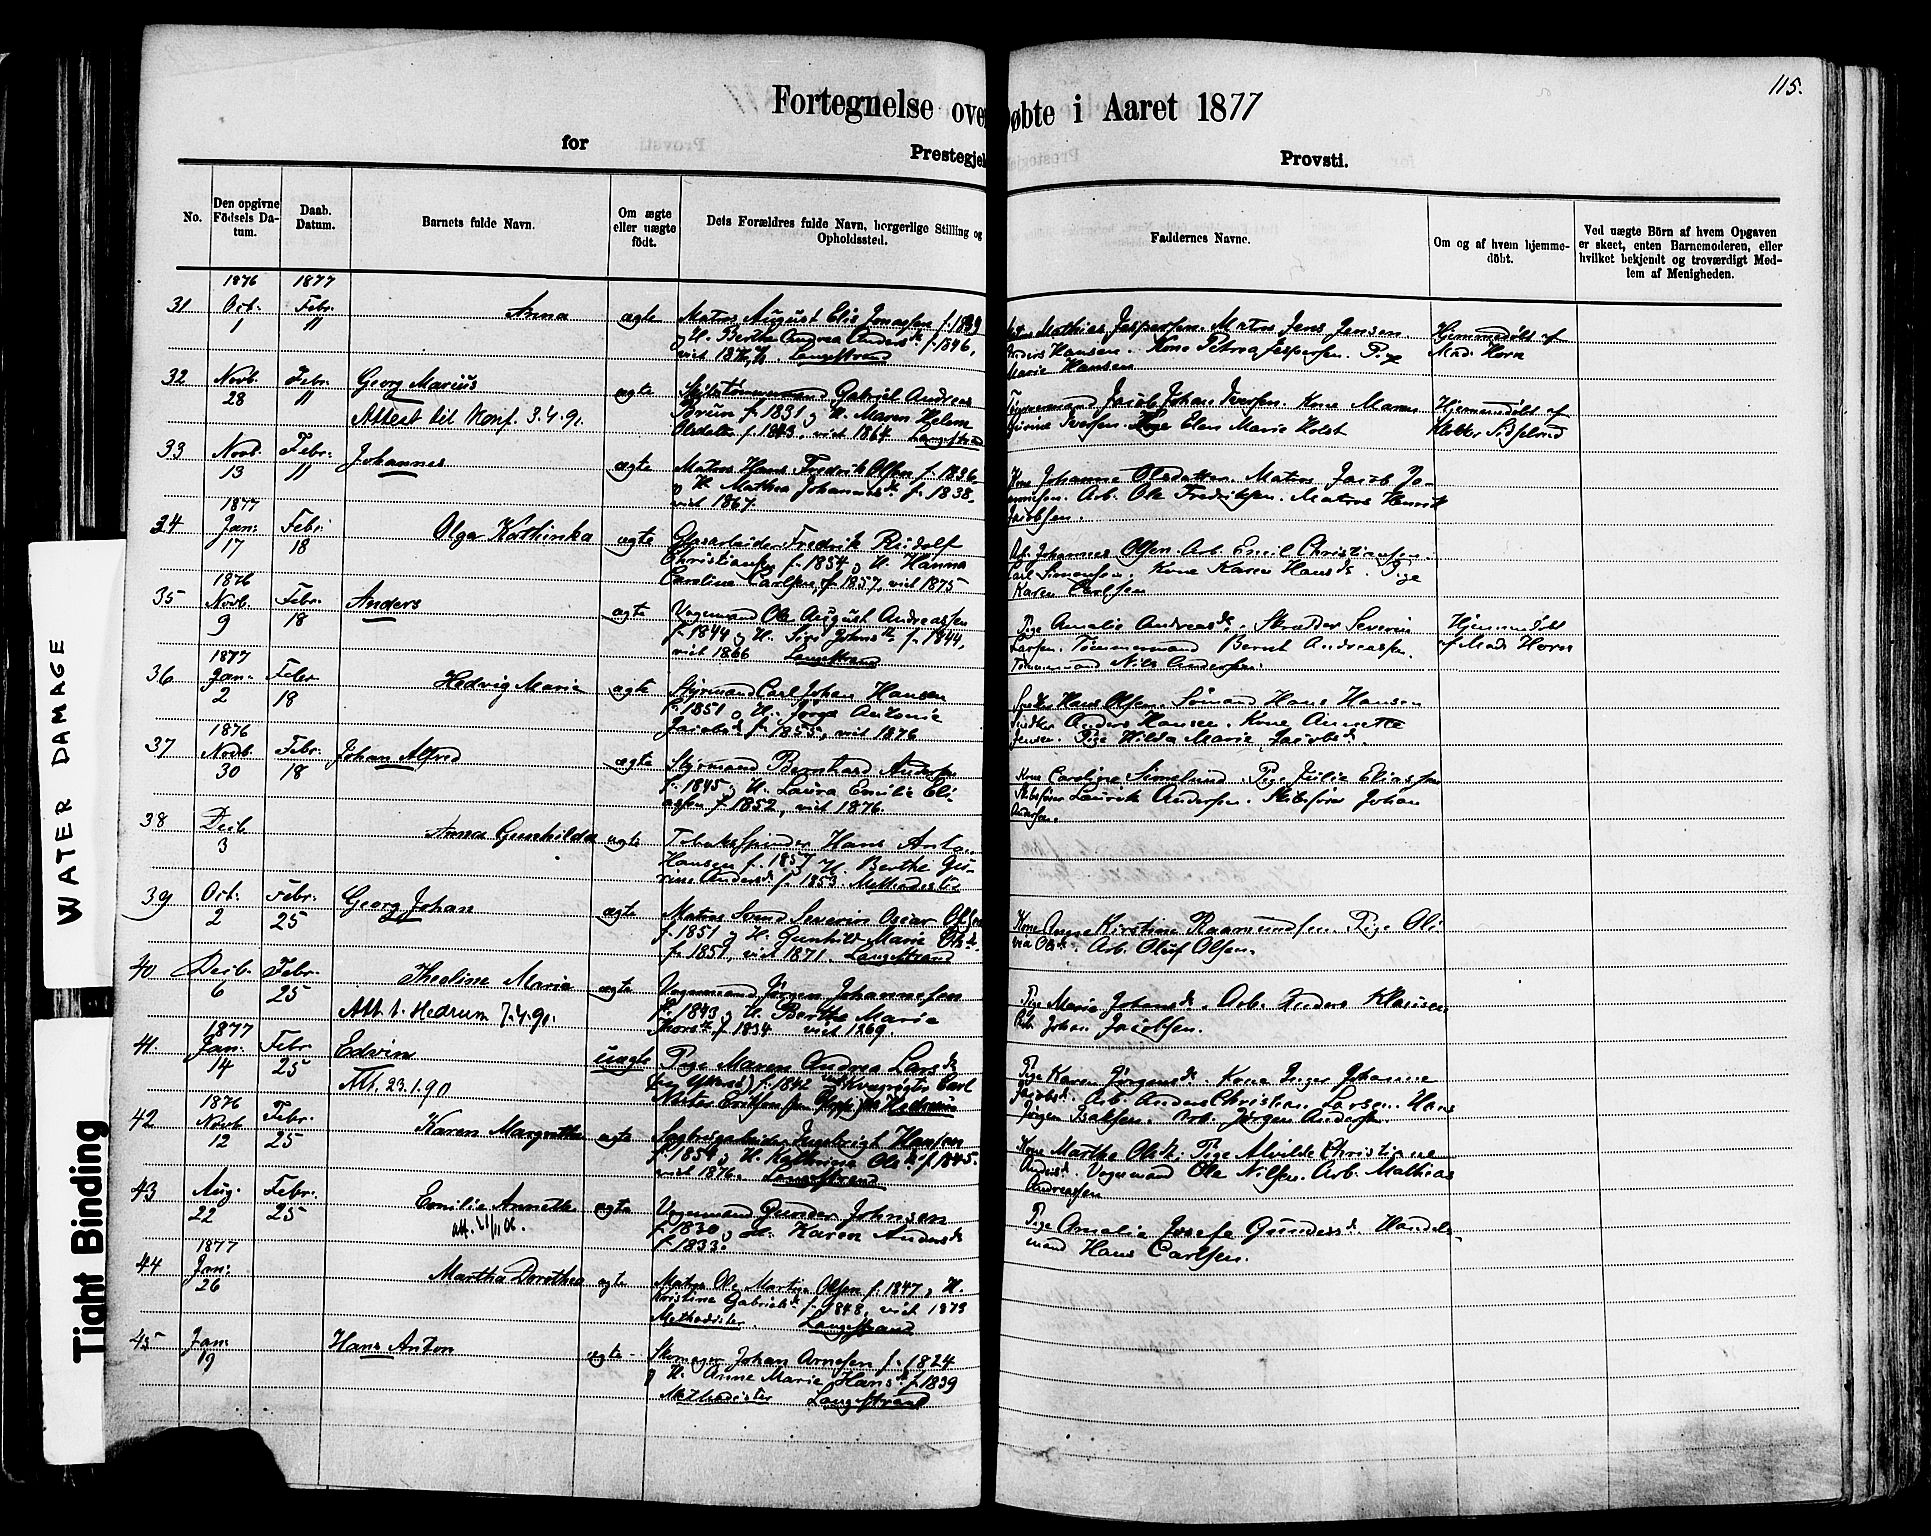 115.
Fortegnelse over Døbte i Aaret 1877
for Prestegjeld Provsti.
No.
Den opgivne Fødsels Datum.
Daab. Datum.
Barnets fulde Navn.
Om ægte eller uægte født.
Dets Forældres fulde Navn, borgerlige Stilling og Opholdssted.
Faddernes Navne.
Om og af hvem hjemmedøbt.
Ved uægte Börn af hvem Opgaven er skeet, enten Barnemoderen, eller hvilket bekjendt og troværdigt Medlem af Menigheden.
1876 1877
31 Oct. 1 Febr. 11 Anna ægte Matros August Elis Jonassen f. 1839
og H. Berthe Andrea Andersd. f. 1846,
Langestrand
Mathias Jespersen. Matros Jens Jensen
Hansen. Kone Petrea Jespersen. Pige
Marie Hansen
Hjemmedøbt af
Mad. Horn
32 Novb. 28 Febr. 11 Georg Marius ægte Skibstømmermand Gabriel Andreas
Attest til Konf. 3.4.91.
f. 1831 og H. Maren Helene
Olsdatter f. 1843, viet 1864 Langestrand
Tømmermand Jacob Johan Iversen. Kone Maren
Iversen. Elen Marie Holst
Hjemmedøbt af
33 Novb. 13 Febr. 11 Johannes ægte Matros Hans Fredrik Olsen f. 1836
og H. Mathea Johannesd. f. 1838,
viet 1867.
Kone Johanne Olsdatter. Matros Jacob
Arb. Ole Fredriksen. Matros Henrik
Jacobsen.
1877
34 Jan. 17 Febr. 18 Olga Kathinka ægte Glasarbeider Fredrik Rudolf
Christiansen f. 1854 og H. Hanna
Caroline Carlsen, f. 1857, viet 1875
Arb. Johannes Olsen. Arb. Emil Christiansen.
Carl Simonsen. Kone Karen Hansd. Pige
Karen Carlsen
1876
35 Novb. 9 Febr. 18 Anders ægte Vognmand Ole August Andreassen
f. 1844 og H. Johnsd. f. 1844,
viet 1866 Langestrand
Pige Amalie Andreasd. Skrædder Severin
Larsen. Tømmermand Bernt Andreassen.
Tømmermand Nils Andersen.
Hjemmedøbt
af Mad. Horn
1877
36 Jan. 2 Febr. 18 Hedvig Marie ægte Styrmand Carl Johan Hansen
f. 1851 og H. Antonie
Jacobsd. f. 1855, viet 1876
Hans Olsen. Sømand Hans Hansen
Snedker Anders Hansen. Kone Annette
Jensen. Pige Hilda Marie Jacobsd.
1876
37 Novb. 30 Febr. 18 Johan Alfred ægte Styrmand Bernhard Andersen
f. 1845 og H. Laura Emilie Eli-
assen f. 1852, viet 1876.
Kone Caroline Simelund. Pige Julie Eliassen
Skibsfører Laurits Andersen. Skibsfører Johan
Andersen.
38 Decb. 3 Anna Gunhilda ægte Tobaksspinder Hans Anton
Hansen f. 1857 og H. Berthe Gu-
rine Andersd. f. 1853. Methodister
39 Oct. 2 Febr. 25 Georg Johan ægte Matros Svend Severin Oscar Olsen
f. 1851 og H. Gunhild Marie Olsd.
f. 1851, viet 1871. Langestrand
Kone Anne Kirstine Raamundsen. Pige Oli-
via Olsd. Arb. Oluf Olsen.
40 Decb. 6 Febr. 25 Theoline Marie ægte Vognmand Jørgen Johannesen
Att. t. Hedrum 7.4.91.
f. 1843 og H. Berthe Marie
Thorsd. f. 1834 viet 1869.
Pige Marie Johansd. Arb. Anders Klausen
Arb. Johan Jacobsen.
1877
41 Jan. 14 Febr. 25 Edvin uægte Pige Maren Andrea Larsd.
Att. 23.1.90
f. 1842 Carl
Hedrum
Pige Karen Jørgensd. Kone Inger Johanne
Jacobsd. Arb. Anders Christian Larsen. Hans
Jørgen Isaksen. Arb. Jørgen Andersen.
1876
42 Novb. 12 Febr. 25 Karen Margrethe ægte Sagbrugsarbeider Ingebrigt Hansen
f. 1854 og H. Kathrine Olsd. f. 1845.
viet 1876. Langestrand
Kone Marthe Olsd. Pige Alvilde Christiane
Andersd. Vognmand Ole Nilsen. Arb. Mathias
Andreassen
43 Aug. 22 Febr. 25 Emilie Annette ægte Vognmand Gunder Johnsen
Att. 21/11 06.
f. 1830 og H. Karen Andersd.
f. 1833.
Pige Amalie Josefe Gundersd. Handels-
mand Hans Carlsen.
1877
44 Jan. 26 Martha Dorothea ægte Matros Ole Martin Olsen f. 1847 og H.
Kristine Gabrielsd. f. 1848, viet 1873
Methodister. Langestrand
45 Jan. 19 Hans Anton ægte Skomager Johan Arnesen f. 1824
og H. Anne Marie Hansd. f. 1839
Methodister Langestrand
WATER DAMAGE
Tight Binding